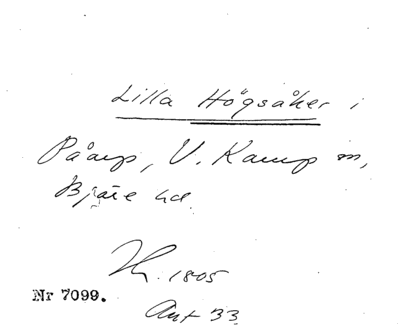 Lilla Högsåker i
Påarp, V. Karup sn,
Bjäre hd.
Th. 1805
Nr 7099.
Ant 33